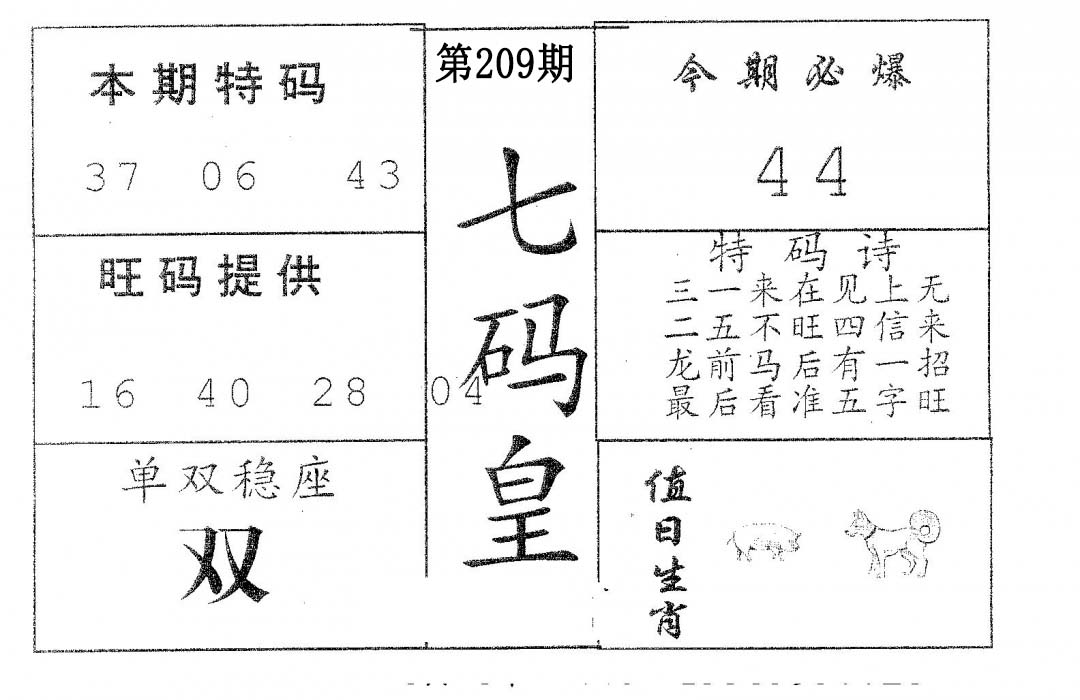 本期特码
37 06 43
旺码提供
16 40 28 04
单双稳座
双
第209期
七码皇
今期必爆
44
特码诗
三一来在见上无
二五不旺四信来
龙前马后有一招
最后看准五字旺
值日生肖